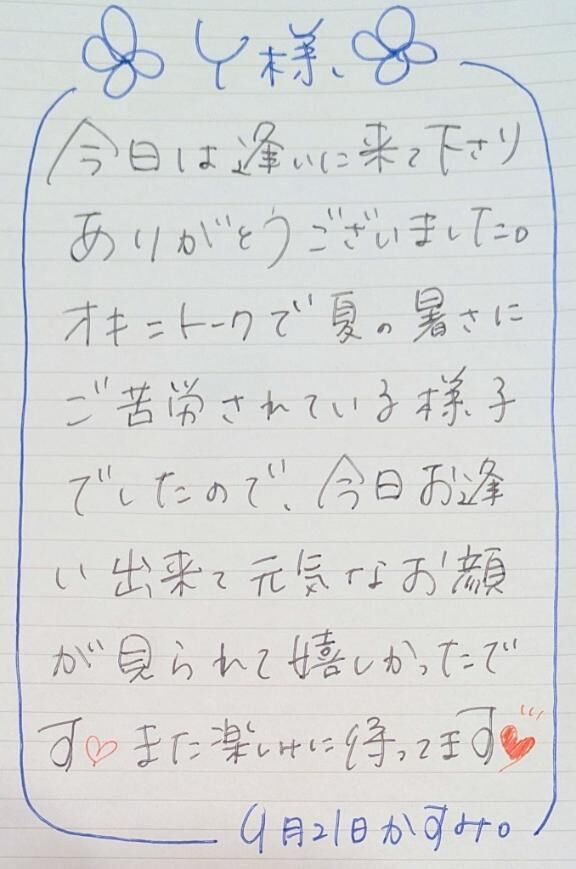 Y様
今日は逢いに来て下さり
ありがとうございました。
オキニトークで夏の暑さに
ご苦労されている様子
でしたので、今日お逢
い出来て元気なお顔
が見られて嬉しかったで
す♡また楽しみに待ってます♥
9月21日かすみ。